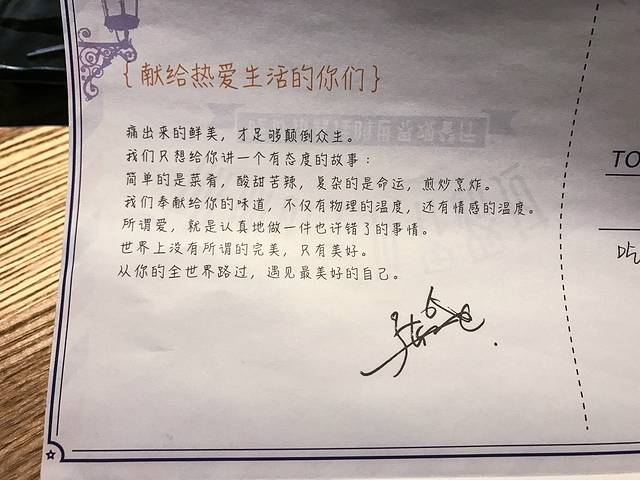 {献给热爱生活的你们}
痛出来的鲜美，才足够颠倒众生。
我们只想给你讲一个有态度的故事：
简单的是菜肴，酸甜苦辣，复杂的是命运，煎炒烹炸。
我们奉献给你的味道，不仅有物理的温度，还有情感的温度。
所谓爱，就是认真地做一件也许错了的事情。
世界上没有所谓的完美，只有美好。
从你的全世界路过，遇见最美好的自己。
TO